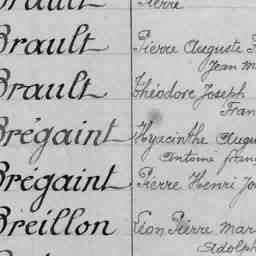 Brault Pierre
Brault Pierre Auguste
Jean M
Brault Théodore Joseph
Fran
Brégaint Hyacinthe Augu
Antoine franç
Brégaint Pierre Henri Jo
Breillon Léon Pierre Mar
Adolph